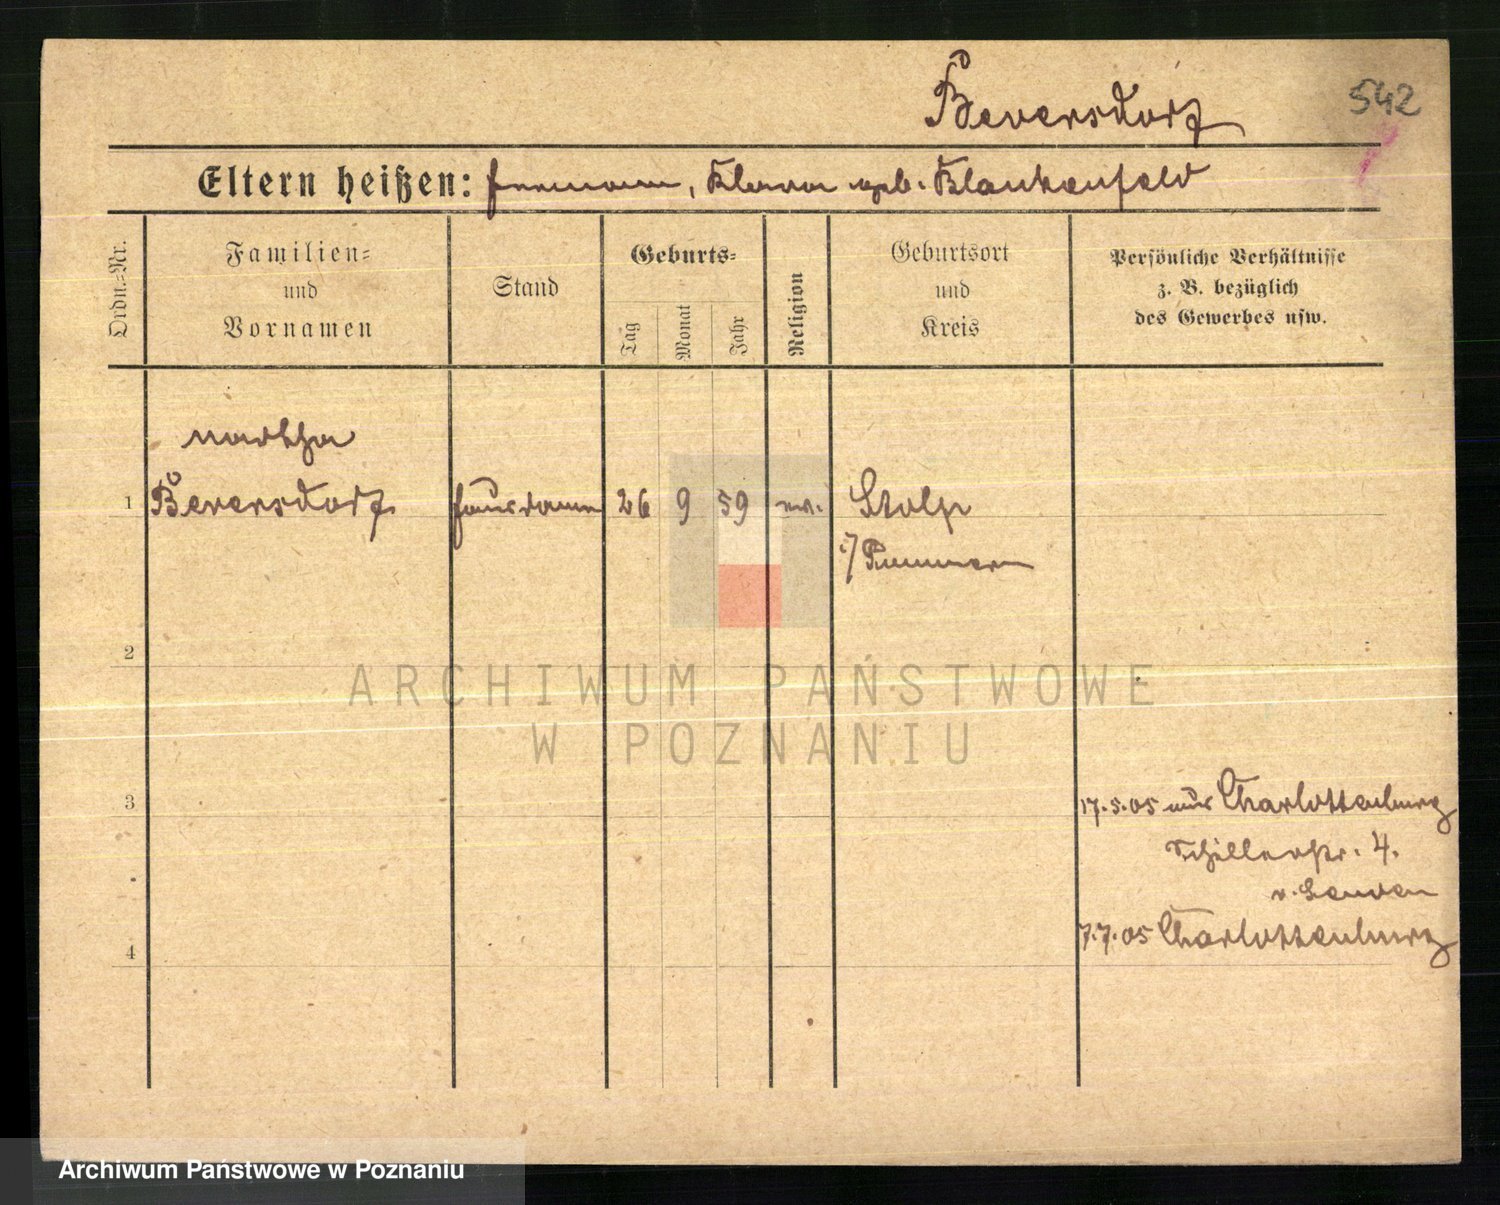 Beversdorf
542
Eltern heißen: Hermann, Klara geb. Blankenfeld
Ordn.-Nr.
Familien-
und
Vornamen
Stand
Geburts-
Tag
Monat
Jahr
Religion
Geburtsort
und
Kreis
Persönliche Verhältnisse
z. B. bezüglich
des Gewerbes usw.
Martha
1 Beversdorf Hausdame 26 9 59 ev. Stolp
i/Pommern
2
ARCHIWUM PAŃSTWOWE
W POZNANIU
3 17.5.05 aus Charlottenburg
Schillerstr. 4.
4 7.7.05 Charlottenburg
Archiwum Państwowe w Poznaniu